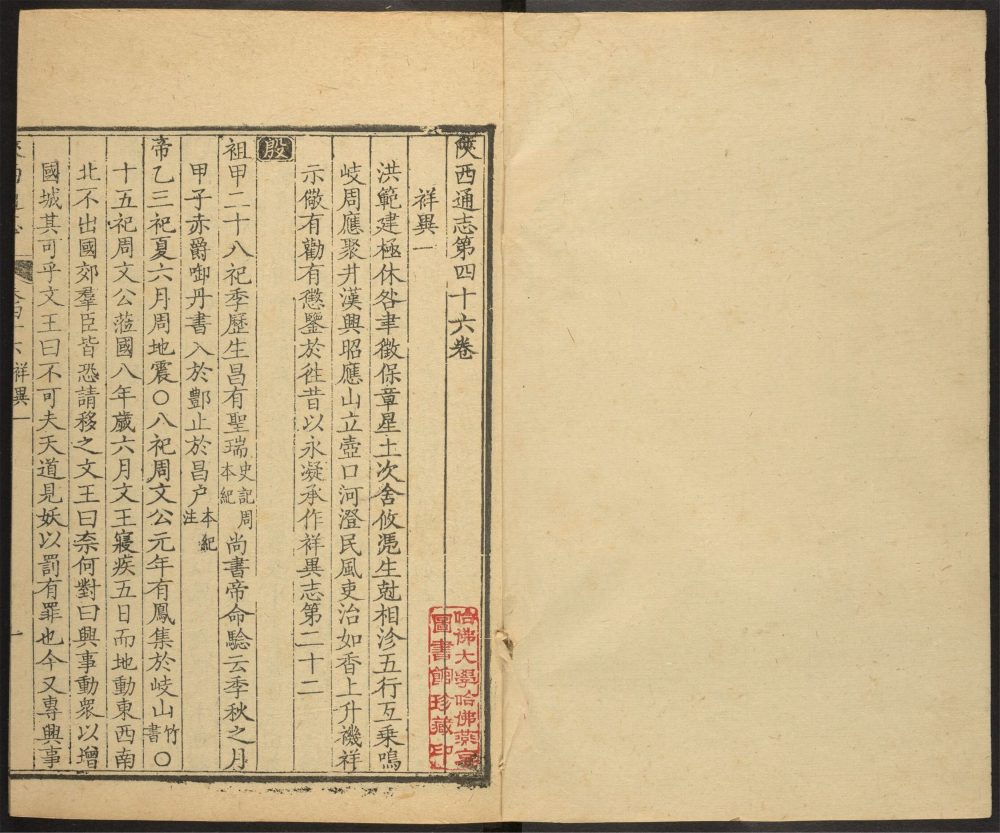 陝西通志第四十六卷
祥異一
洪範建極休咎聿徵保章星土次舍攸憑生尅相沴五行互乗鳴
岐周應聚井漢興昭應山立壺口河澄民風吏治如香上升禨祥
示儆有勸有懲鑒於徃昔以永凝承作祥異志第二十二
殷
祖甲二十八祀季歷生昌有聖瑞史記周本紀尚書帝命驗云季秋之月
甲子赤爵啣丹書入於酆止於昌户本紀注
帝乙三祀夏六月周地震〇八祀周文公元年有鳳集於岐山竹書〇
十五祀周文公蒞國八年歲六月文王寢疾五日而地動東西南
北不出國郊羣臣皆恐請移之文王曰奈何對曰興事動衆以增
國城其可乎文王曰不可夫天道見妖以罰有罪也今又專興事
祥異一
一
哈佛大學哈佛燕京
圖書館珍藏印